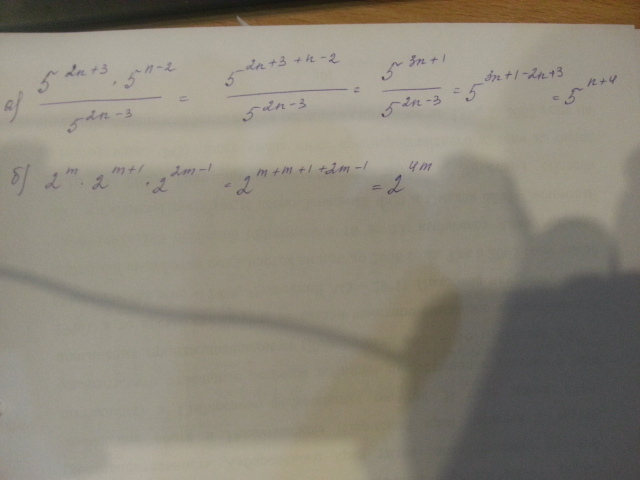 а) \frac{5^{2n+3} \cdot 5^{n-2}}{5^{2n-3}} = \frac{5^{2n+3+n-2}}{5^{2n-3}} = \frac{5^{3n+1}}{5^{2n-3}} = 5^{3n+1-2n+3} = 5^{n+4}
б) 2^{m} \cdot 2^{m+1} \cdot 2^{2m-1} = 2^{m+m+1+2m-1} = 2^{4m}